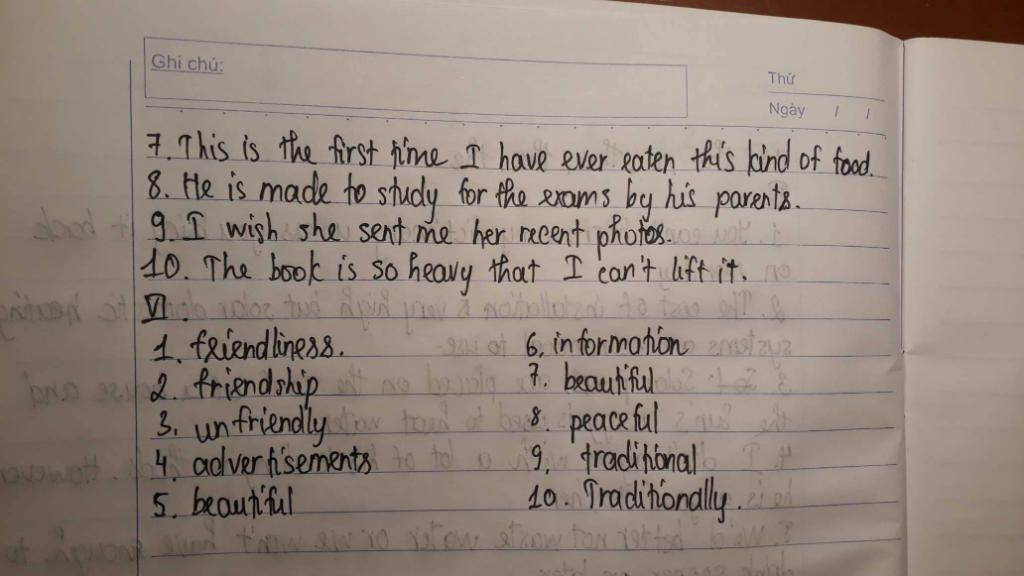 Ghi chú:
Thứ
Ngày / /
7. This is the first time I have ever eaten this kind of food.
8. He is made to study for the exams by his parents.
9. I wish she sent me her recent photos.
10. The book is so heavy that I can't lift it.
VI.
1. friendliness.
2. friendship
3. unfriendly
4. advertisements
5. beautiful
6. information
7. beautiful
8. peaceful
9. traditional
10. Traditionally.